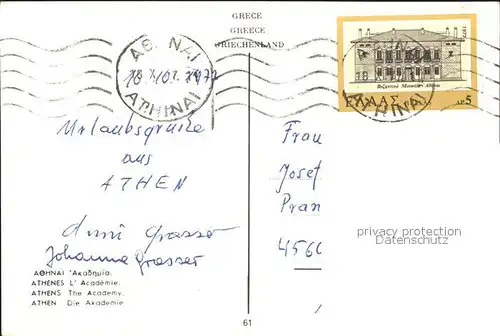 GRECE
GREECE
GRIECHENLAND
ΑΘΗΝΑΙ
18 X 10 1977
ATHINAI
1977
ATHINAI
ΕΛΛΑΣ ΔΡ 5
Urlaubsgrüße
aus
ATHEN
Anni Grasser
Johanna Grasser
Frau
Josef
Pran
4560
privacy protection
Datenschutz
ΑΘΗΝΑΙ 'Ακαδημία.
ATHENES L' Académie.
ATHENS The Academy.
ATHEN Die Akademie
61